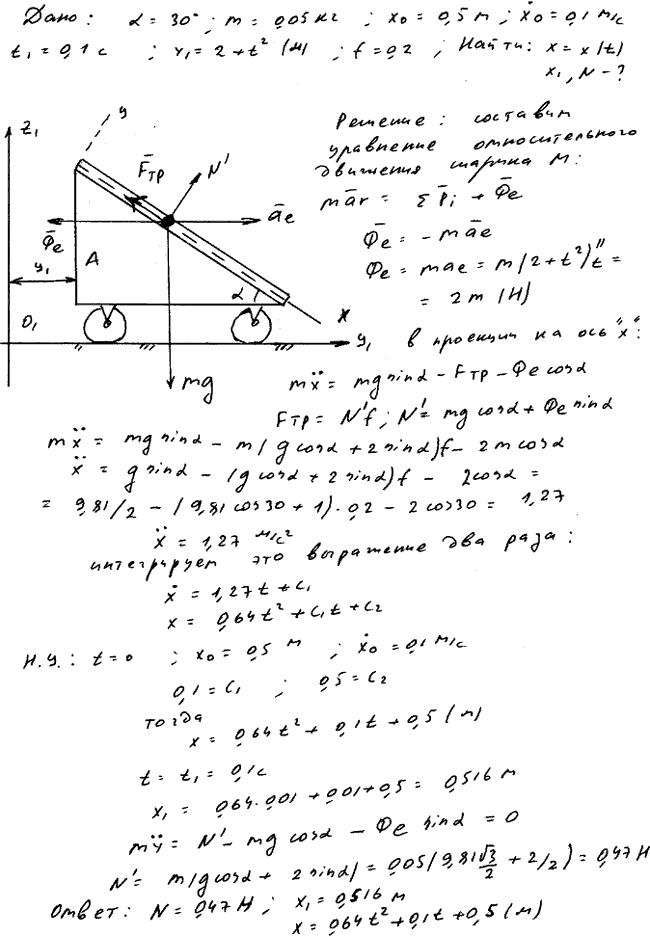 Дано: α = 30°; m = 0,05 кг; x₀ = 0,5 м; ẋ₀ = 0,1 м/с
t₁ = 0,1 с; y₁ = 2 + t² (м); f = 0,2; Найти: x = x(t)
x₁, N - ?
Решение: составим
уравнение относительного
движения шарика М:
mā_r = Σ P̄i + Φ̄e
Φ̄e = -māe
Φe = mae = m(2+t²)''t =
= 2m (Н)
z₁
y
F̄тр
N'
āe
Φ̄e
y₁
A
α
O₁
x
y₁
mg
в проекции на ось "x":
mẍ = mg sinα - Fтр - Φe cosα
Fтр = N'f; N' = mg cosα + Φe sinα
mẍ = mg sinα - m(g cosα + 2 sinα)f - 2m cosα
ẍ = g sinα - (g cosα + 2 sinα)f - 2cosα =
= 9,81/2 - (9,81 cos30 + 1)·0,2 - 2 cos30 = 1,27
ẍ = 1,27 м/с²
интегрируем это выражение два раза:
ẋ = 1,27t + C₁
x = 0,64t² + C₁t + C₂
Н.У.: t = 0; x₀ = 0,5 м; ẋ₀ = 0,1 м/с
0,1 = C₁; 0,5 = C₂
тогда
x = 0,64t² + 0,1t + 0,5 (м)
t = t₁ = 0,1с
x₁ = 0,64·0,01 + 0,01 + 0,5 = 0,516 м
mÿ = N' - mg cosα - Φe sinα = 0
N' = m(g cosα + 2 sinα) = 0,05(9,81 √3/2 + 2/2) = 0,47 Н
Ответ: N = 0,47 Н; x₁ = 0,516 м
x = 0,64t² + 0,1t + 0,5 (м)